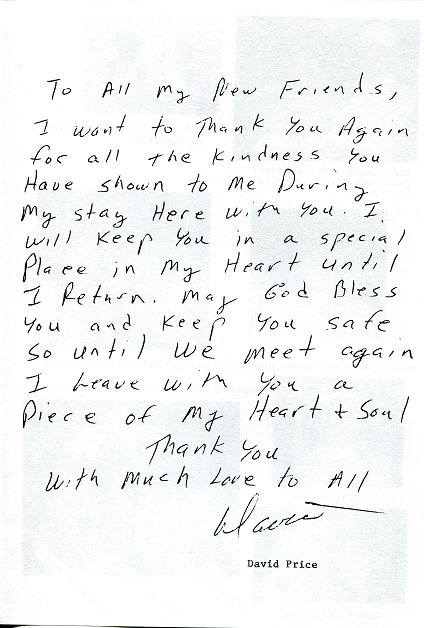 To All my New Friends,
I want to Thank You Again
for all the kindness You
Have shown to Me During
My stay Here with You. I
will keep You in a special
Place in My Heart until
I Return. May God Bless
You and keep You safe
So until We meet again
I Leave with You a
Piece of My Heart + Soul
Thank You
With Much Love to All
David
David Price